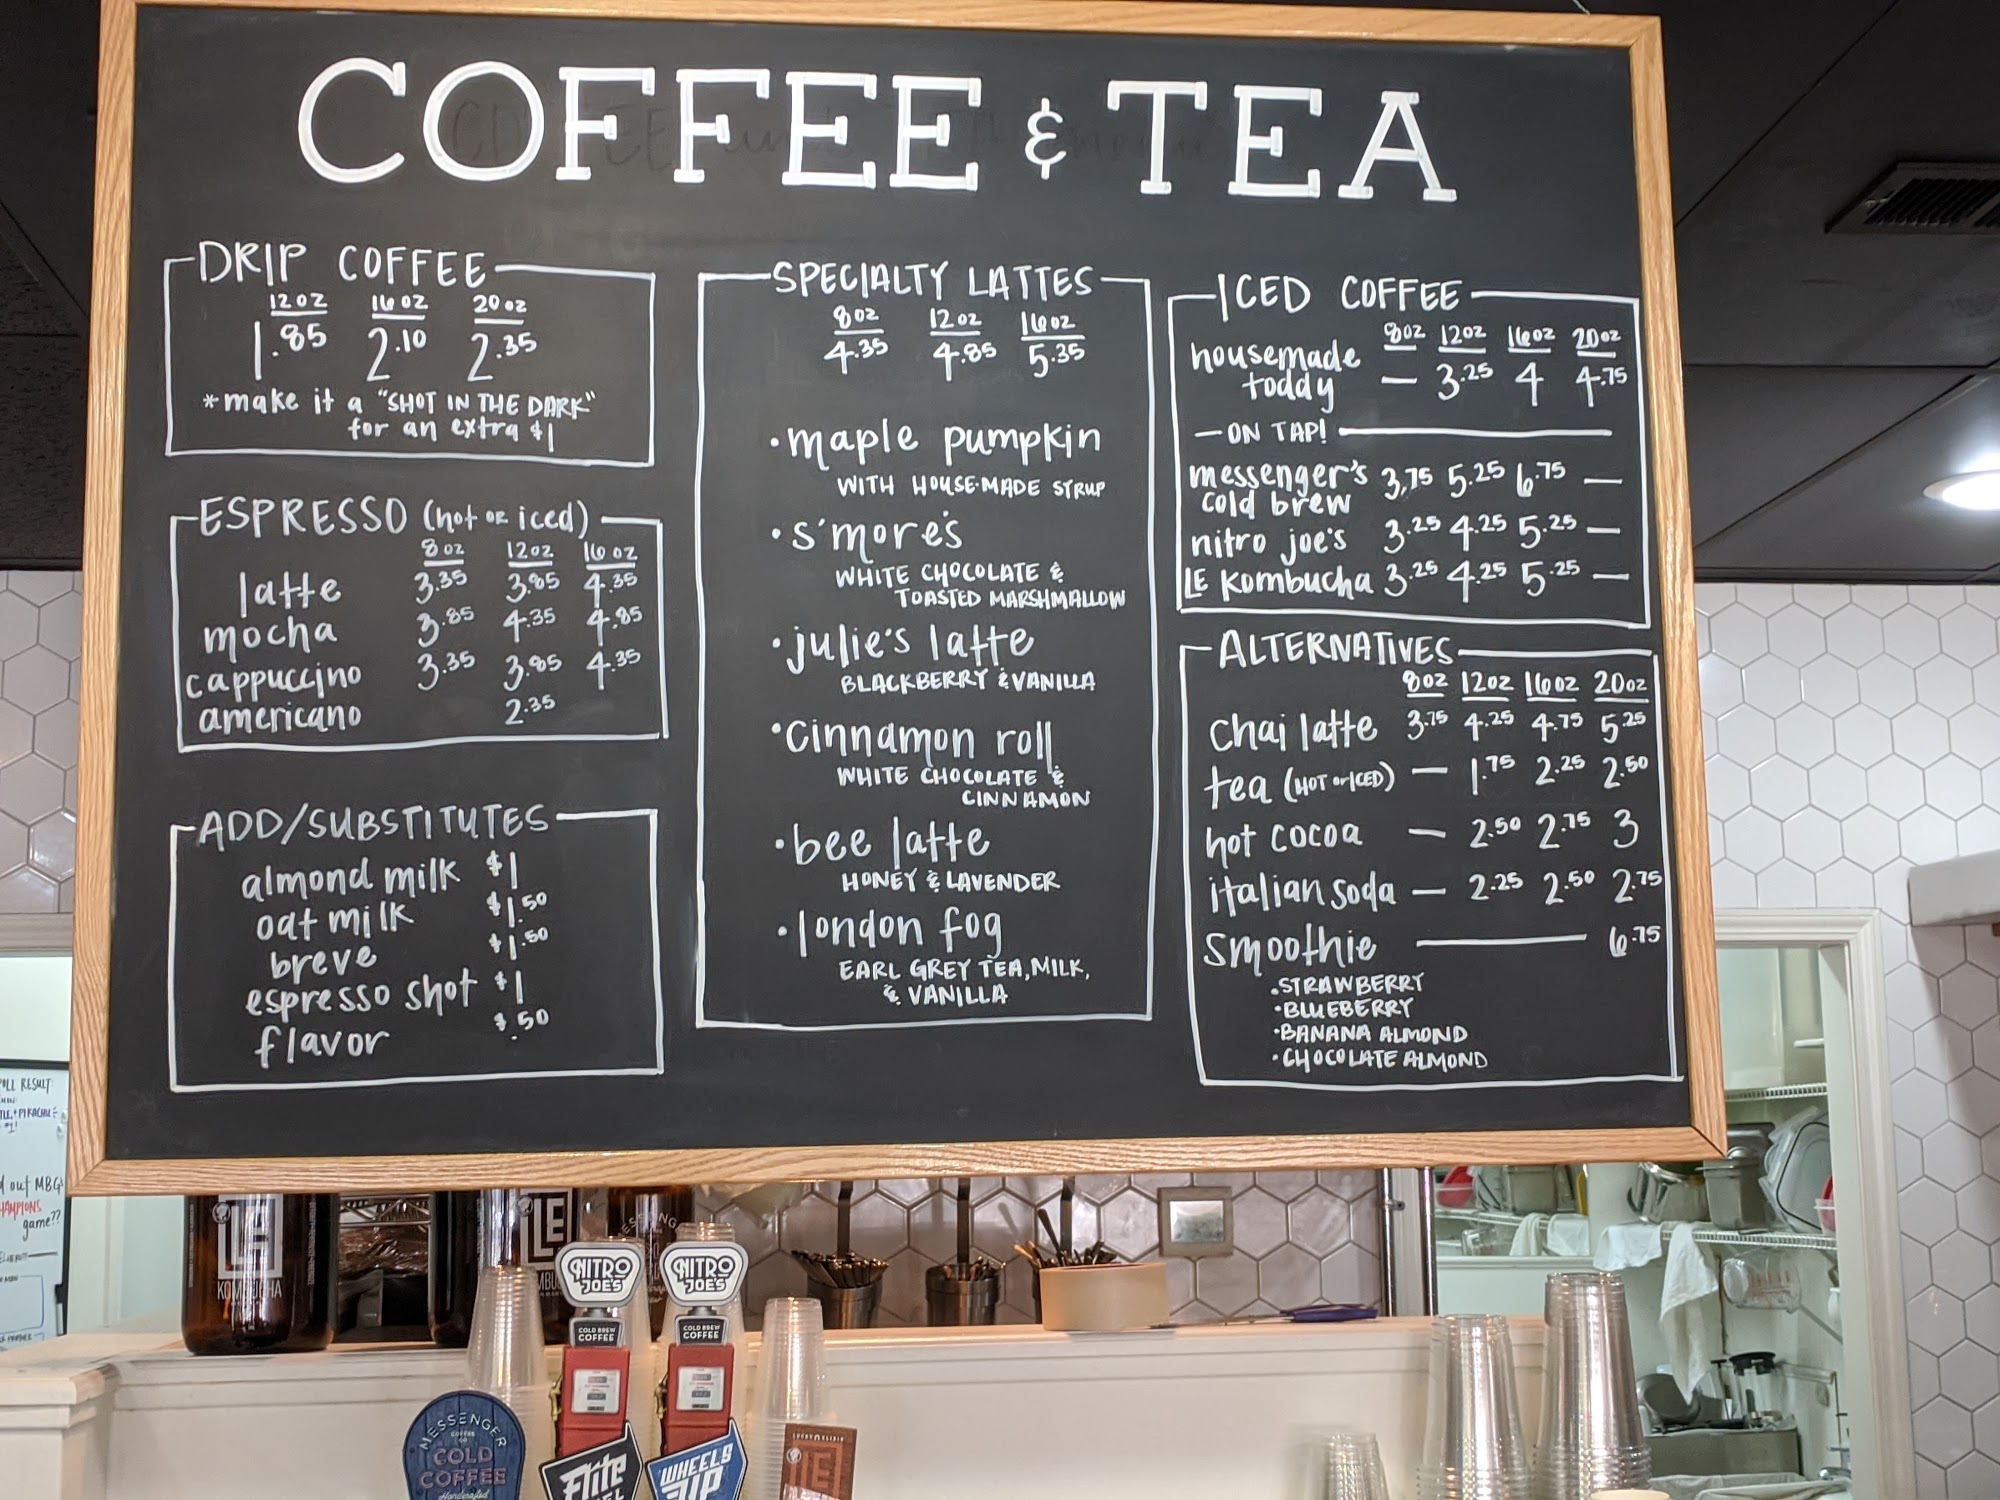 COFFEE & TEA
DRIP COFFEE
12 oz 16 oz 20 oz
1.85 2.10 2.35
*make it a "SHOT IN THE DARK"
for an extra $1
ESPRESSO (hot or iced)
8 oz 12 oz 16 oz
latte 3.35 3.85 4.35
mocha 3.85 4.35 4.85
cappuccino 3.35 3.85 4.35
americano 2.35
ADD/SUBSTITUTES
almond milk $1
oat milk $1.50
breve $1.50
espresso shot $1
flavor $.50
SPECIALTY LATTES
8 oz 12 oz 16 oz
4.35 4.85 5.35
• maple pumpkin
WITH HOUSE-MADE SYRUP
• s'mores
WHITE CHOCOLATE &
TOASTED MARSHMALLOW
• julie's latte
BLACKBERRY & VANILLA
• cinnamon roll
WHITE CHOCOLATE &
CINNAMON
• bee latte
HONEY & LAVENDER
• london fog
EARL GREY TEA, MILK,
& VANILLA
ICED COFFEE
8oz 12oz 16oz 20oz
housemade
toddy — 3.25 4 4.75
— ON TAP!
messenger's 3.75 5.25 6.75 —
cold brew
nitro joe's 3.25 4.25 5.25 —
LE kombucha 3.25 4.25 5.25 —
ALTERNATIVES
8oz 12oz 16oz 20oz
chai latte 3.75 4.25 4.75 5.25
tea (HOT or ICED) — 1.75 2.25 2.50
hot cocoa — 2.50 2.75 3
italian soda — 2.25 2.50 2.75
smoothie — 6.75
• STRAWBERRY
• BLUEBERRY
• BANANA ALMOND
• CHOCOLATE ALMOND
RESULT
out MBG
game??
LE
KOMBUCHA
LE
NITRO
JOE'S
COLD BREW
COFFEE
NITRO
JOE'S
COLD BREW
COFFEE
MESSENGER
COFFEE
CO
COLD
COFFEE
Handcrafted
WHEELS
UP
LE